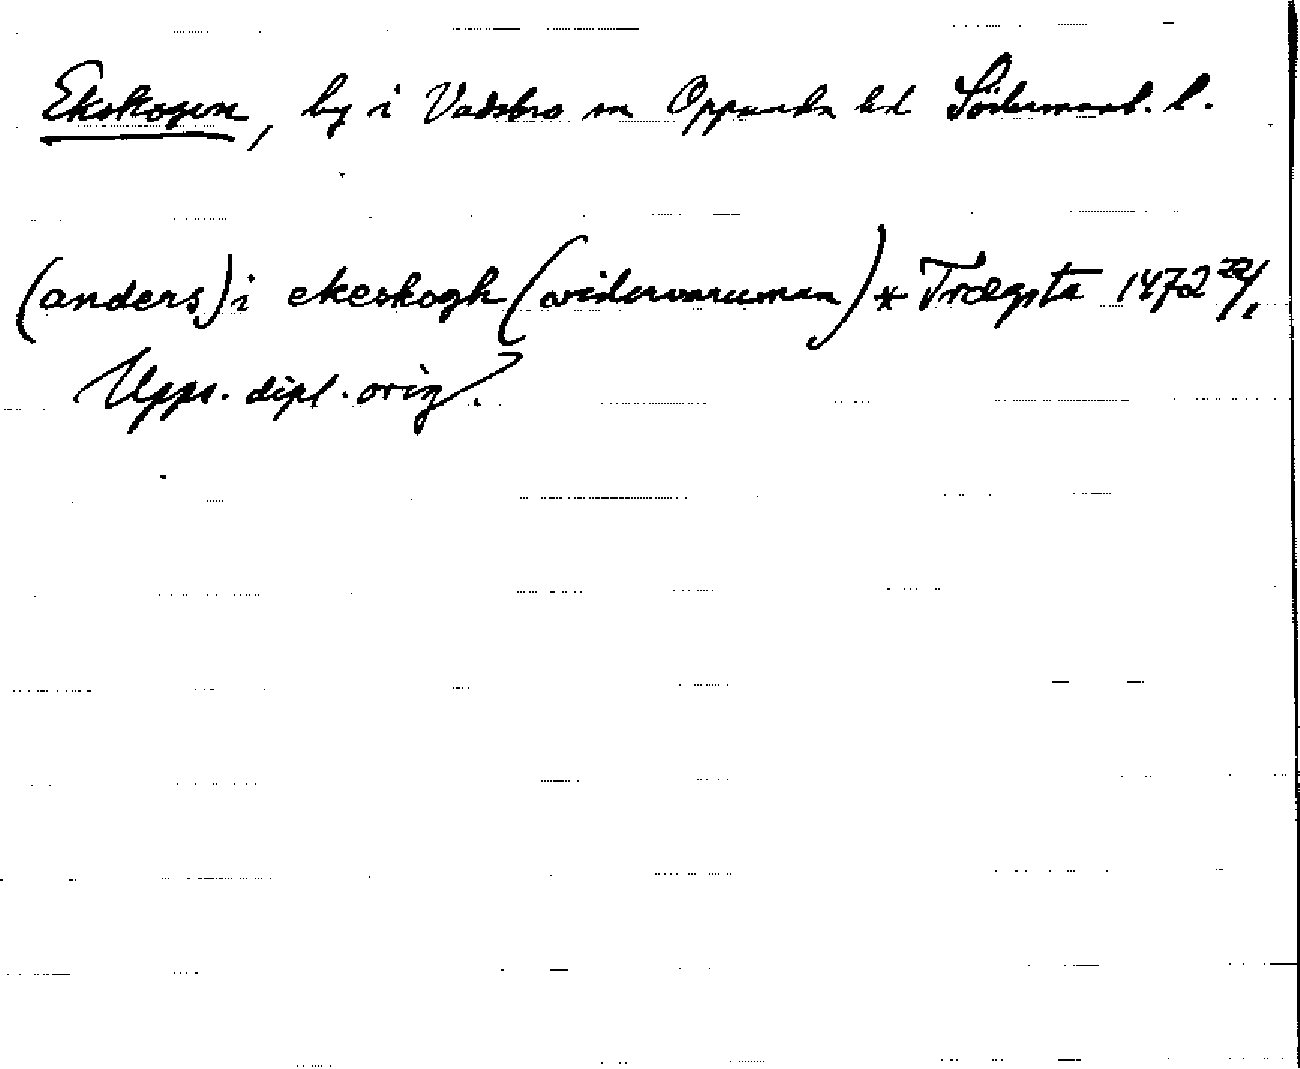 Ekskogen, by i Vadsbro sn Oppunda hd Södermanl. l.
(anders) i ekeskogh (widervaruman) * Trægsta 1472 22/1
Upps. dipl. orig.